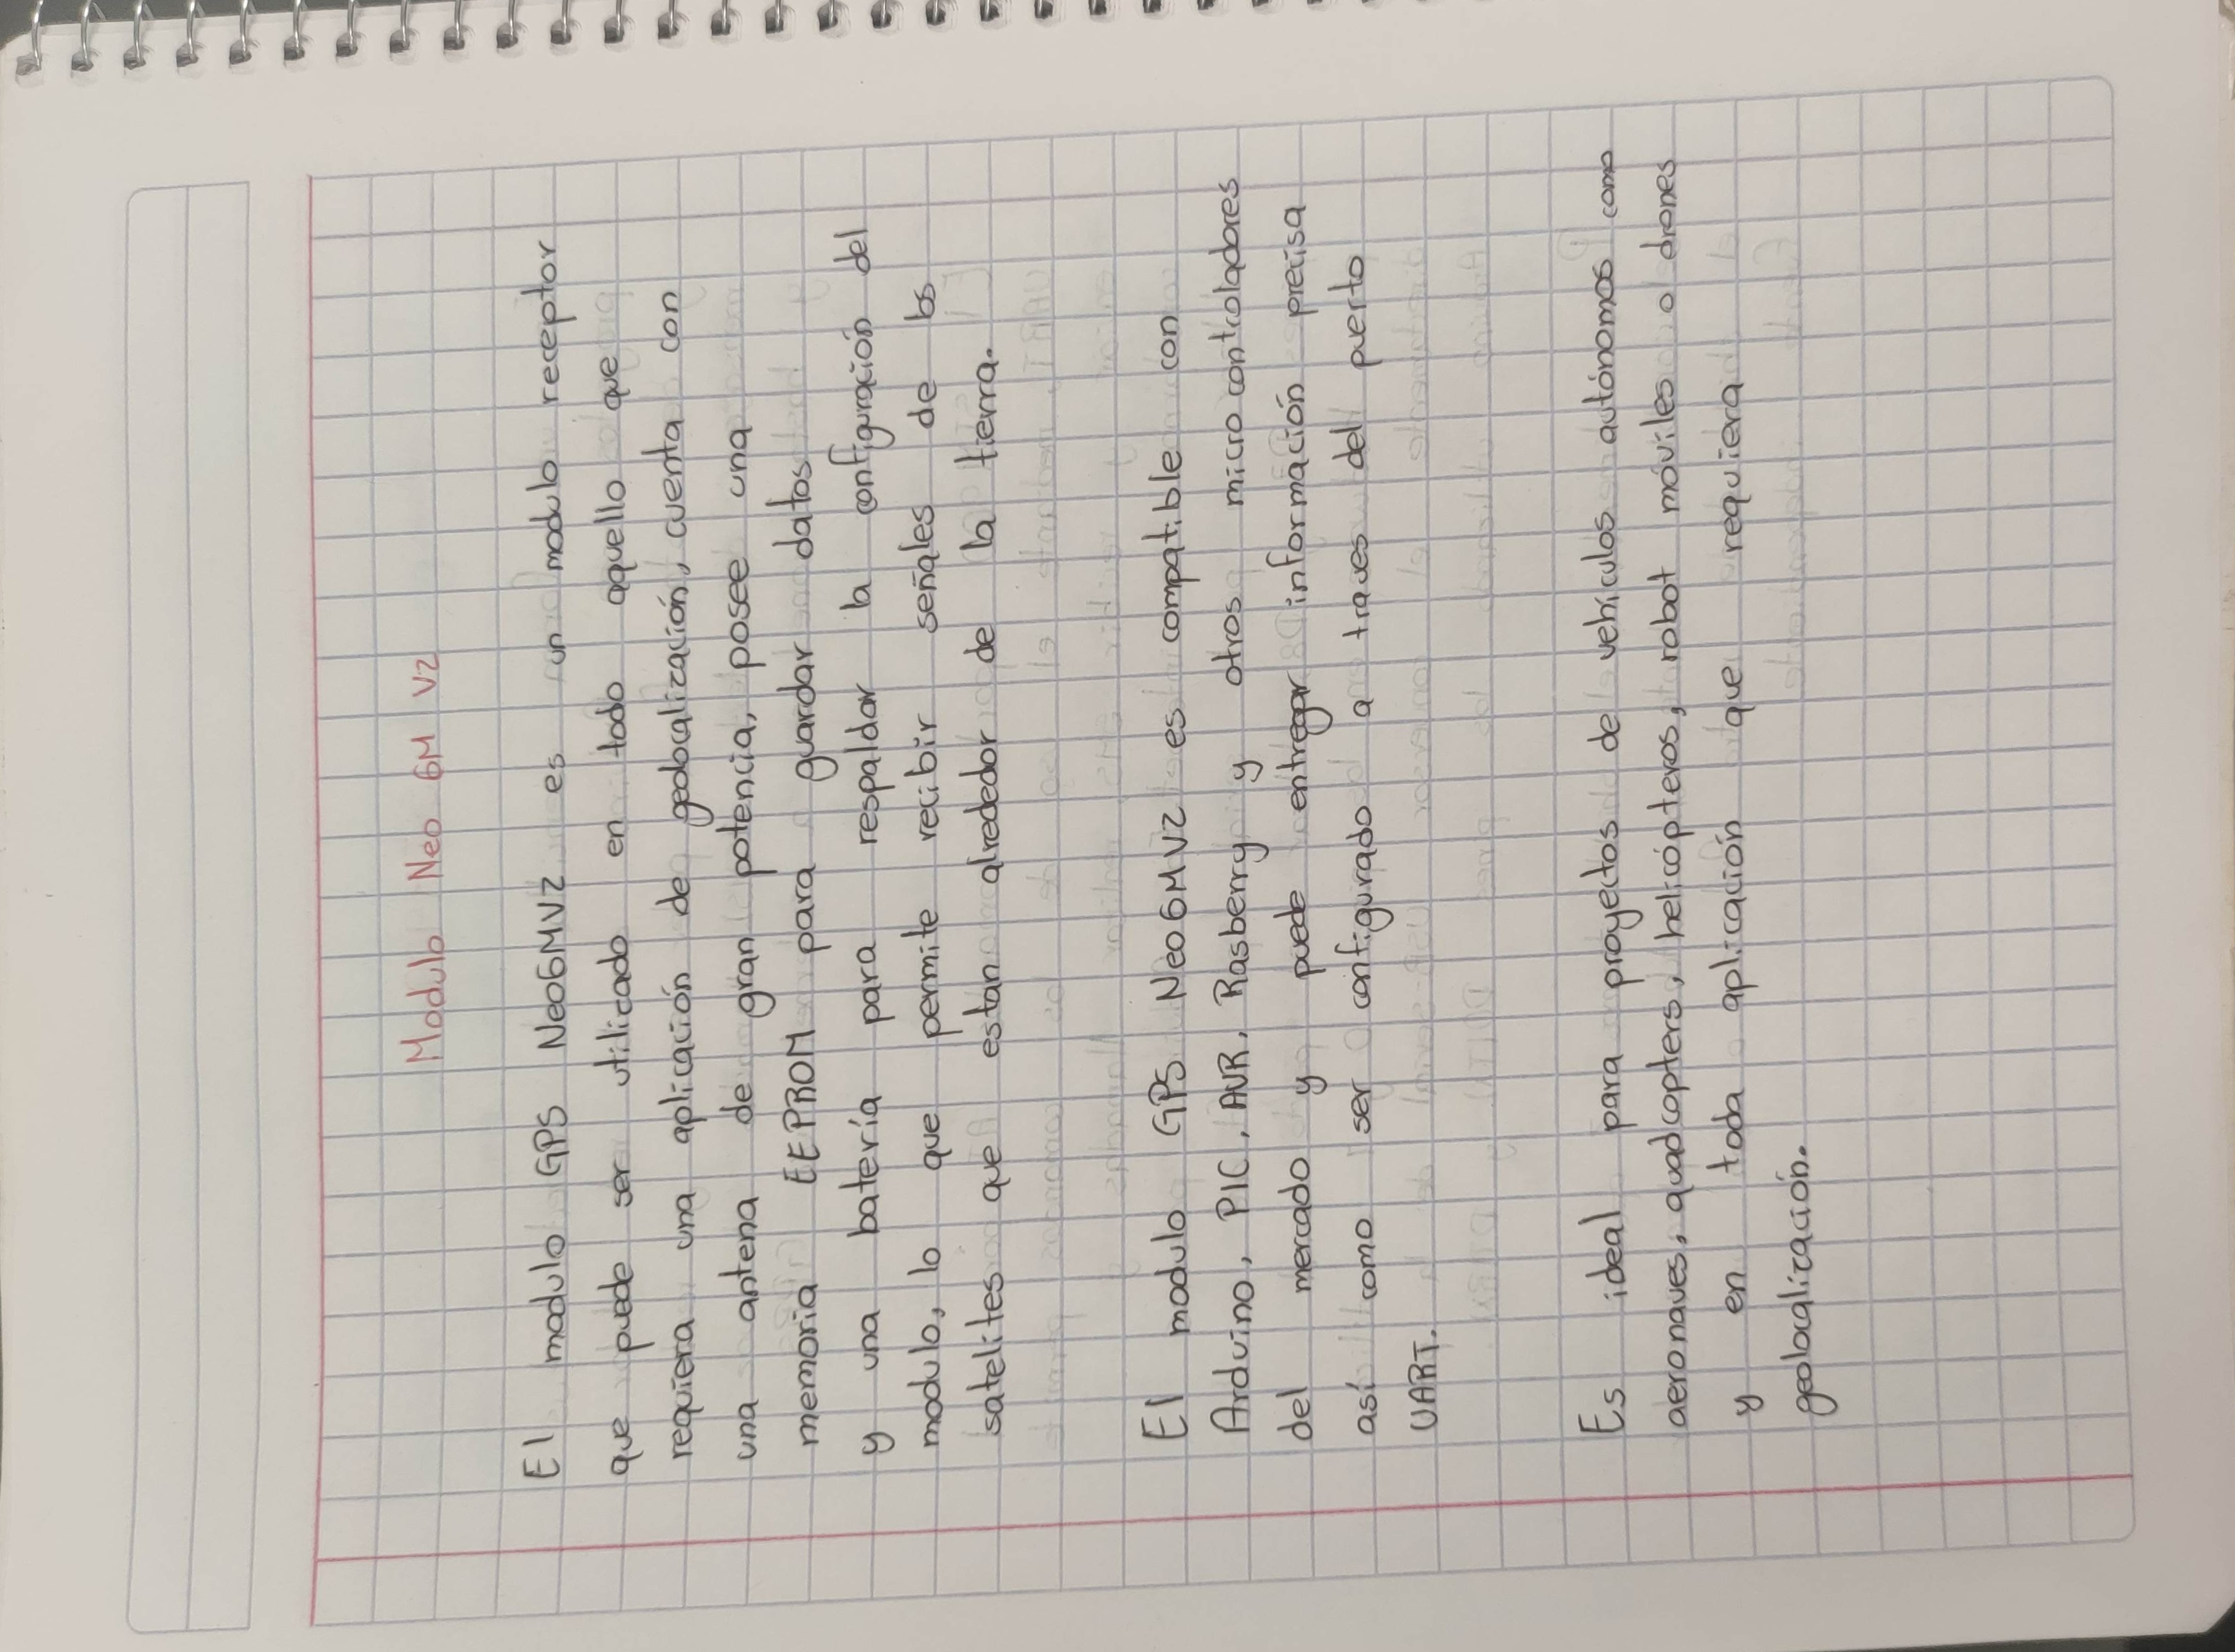 Modulo Neo 6M V2
El modulo GPS Neo6MV2 es un modulo receptor
que puede ser utilizado en todo aquello que
requiera una aplicación de geolocalización, cuenta con
una antena de gran potencia, posee una
memoria EEPROM para guardar datos
y una batería para respaldar la configuración del
modulo, lo que permite recibir señales de los
satelites que estan alrededor de la tierra.
El modulo GPS Neo6MV2 es compatible con
Arduino, PIC, AVR, Rasberry y otros microcontroladores
del mercado y puede entregar información precisa
así como ser configurado a traves del puerto
UART.
Es ideal para proyectos de vehículos autónomos como
aeronaves, quadcopters, helicópteros, robot móviles o drones
y en toda aplicación que requiera
geolocalización.